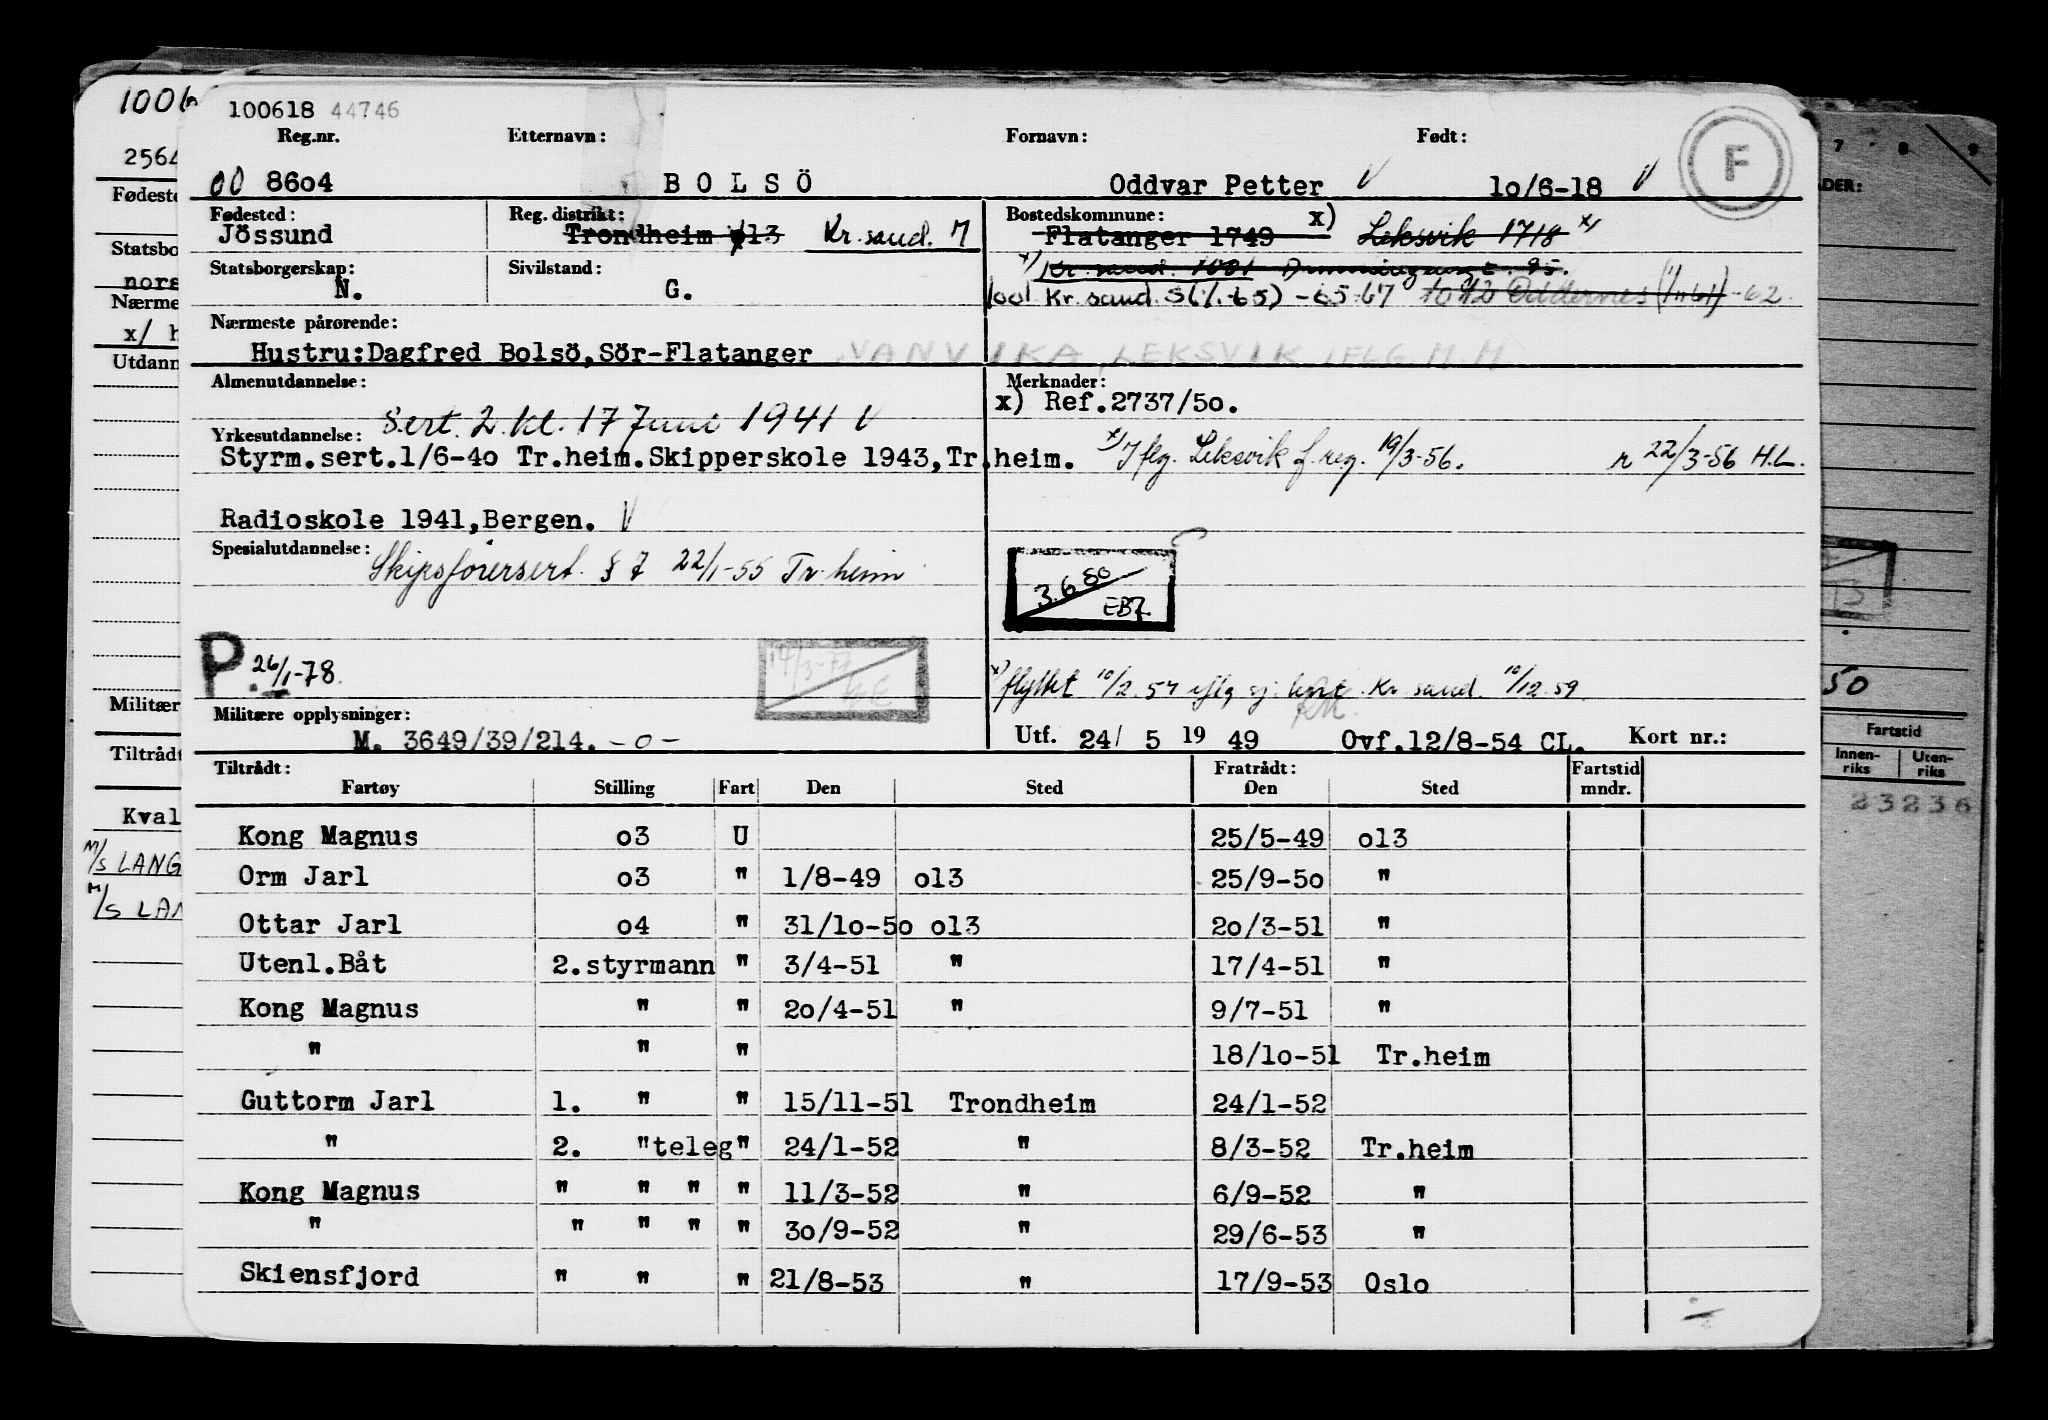 100618 44746
Reg.nr. Etternavn: Fornavn: Født:
00 86o4 BOLSÖ Oddvar Petter V 1o/6-18 V
F
Fødested: Reg. distrikt: Bostedskommune: x)
Jössund Trondheim o13 Kr.sand. 7 Flatanger 1749 Leksvik 1718 x)
Statsborgerskap: Sivilstand: x) Kr. sand. 1001
N. G. 1001 Kr. sand. S(1/1-65) -65-67 Oddernes -62.
Nærmeste pårørende:
Hustru:Dagfred Bolsö,Sör-Flatanger VANVIKA, LEKSVIK IFLG. M.M.
Almenutdannelse: Merknader:
Sert. 2. kl. 17 Juni 1941 V x) Ref.2737/5o.
Yrkesutdannelse:
Styrm.sert.1/6-4o Tr.heim.Skipperskole 1943,Tr.heim. x) Iflg. Leksvik f.reg. 19/3-56. r 22/3-56 H.L.
Radioskole 1941,Bergen. V
Spesialutdannelse:
Skipsförersert. § 7 22/1-55 Tr.heim
3.6.80
P 26/1-78.
14/3-77
x) flyttet 10/2.57 iflg sj. kort. Kr sand. 10/12.59
Militære opplysninger:
M. 3649/39/214. -o- Utf. 24/ 5 19 49 Ovf.12/8-54 CL. Kort nr.:
Tiltrådt: Fratrådt: Fartstid
Fartøy Stilling Fart Den Sted Den Sted mndr.
Kong Magnus o3 U 25/5-49 o13
Orm Jarl o3 " 1/8-49 o13 25/9-5o "
Ottar Jarl o4 " 31/1o-5o o13 2o/3-51 "
Utenl.Båt 2.styrmann " 3/4-51 " 17/4-51 "
Kong Magnus " " 2o/4-51 " 9/7-51 "
" " " 18/1o-51 Tr.heim
Guttorm Jarl 1. " " 15/11-51 Trondheim 24/1-52
" 2. "teleg" 24/1-52 " 8/3-52 Tr.heim
Kong Magnus " " " " 11/3-52 " 6/9-52 "
" " " " " 3o/9-52 " 29/6-53 "
Skiensfjord " " " 21/8-53 " 17/9-53 Oslo
1006
2564
Fødeste
Statsbo
nors
Nærme
x/ h
Utdann
Militær
Tiltrådt
Kval
M/S LANG
M/S LAN
7 8 9
ADER:
50
Fartstid
Innen-riks Uten-riks
23236